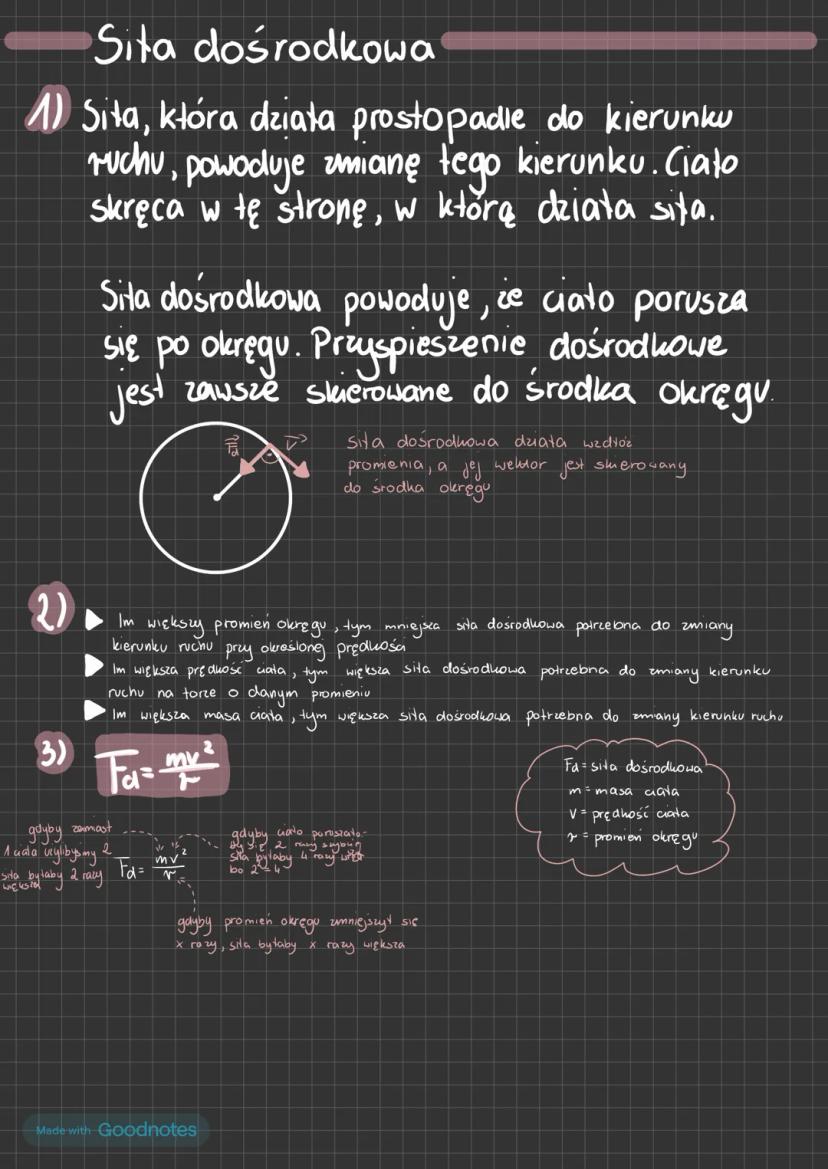 Siła dośrodkowa
1) Siła, która działa prostopadle do kierunku
ruchu, powoduje zmianę tego kierunku. Ciało
skręca w tę stronę, w którą działa siła.
Siła dośrodkowa powoduje, że ciało porusza
się po okręgu. Przyspieszenie dośrodkowe
jest zawsze skierowane do środka okręgu.
Fd v
siła dośrodkowa działa wzdłóż
promienia, a jej wektor jest skierowany
do środka okręgu
2) Im większy promień okręgu, tym mniejsza siła dośrodkowa potrzebna do zmiany
kierunku ruchu przy określonej prędkości
Im większa prędkość ciała, tym większa siła dośrodkowa potrzebna do zmiany kierunku
ruchu na torze o danym promieniu
Im większa masa ciała, tym większa siła dośrodkowa potrzebna do zmiany kierunku ruchu
3) Fd = mv²/r
Fd = siła dośrodkowa
m = masa ciała
v = prędkość ciała
r = promień okręgu
gdyby zamiast
1 ciała użylibyśmy 2
siła byłaby 2 razy
większa
Fd = mv²/r
gdyby ciało poruszało-
by się 2 razy szybciej
siła byłaby 4 razy
bo 2² = 4
gdyby promień okręgu zmniejszył się
x razy, siła byłaby x razy większa
Made with Goodnotes